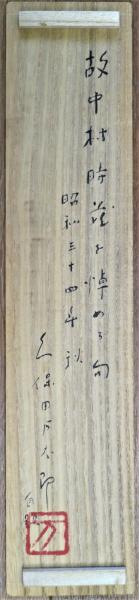 故中村時蔵を悼める句
昭和三十四年秋
久保田万太郎